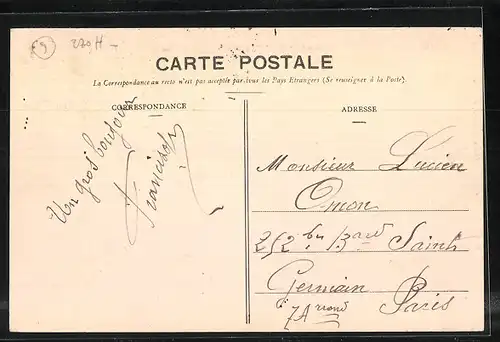 £9 220 H -
CARTE POSTALE
La Correspondance au recto n'est pas acceptée par tous les Pays Etrangers (Se renseigner à la Poste).
CORRESPONDANCE
Un gros bonjour
ADRESSE
Monsieur Lucien
Omon
252 bis Bard Saint
Germain
7 Arrond Paris